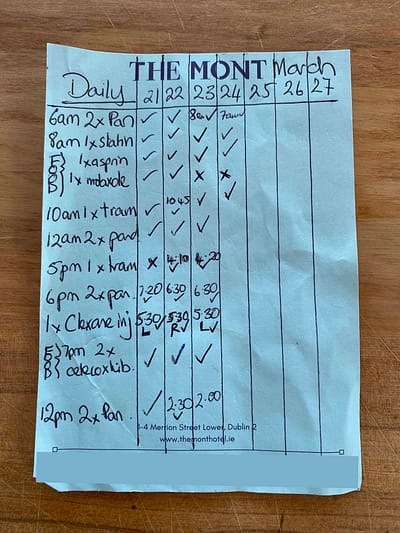 THE MONT March
Daily 21 22 23 24 25 26 27
6am 2x Pan ✓ ✓ 8am ✓ 7am ✓
8am 1x statin ✓ ✓ ✓ ✓
1x asprin ✓ ✓ ✓ ✓
1x x x
10am 1x tram ✓ 10 45 ✓ ✓
12am 2x pand ✓ ✓ ✓
5pm 1x tram x 4.10 ✓ 4.20 ✓
6pm 2x pan. 7.20 ✓ 6.30 ✓ 6.30 ✓
1x Clexane inj 5.30 L ✓ 5.30 R ✓ 5.30 L ✓
7pm 2x
celecoxib. ✓ ✓ ✓
12pm 2x Pan. ✓ 2.30 ✓ 2.00
1-4 Merrion Street Lower, Dublin 2
www.themonthotel.ie